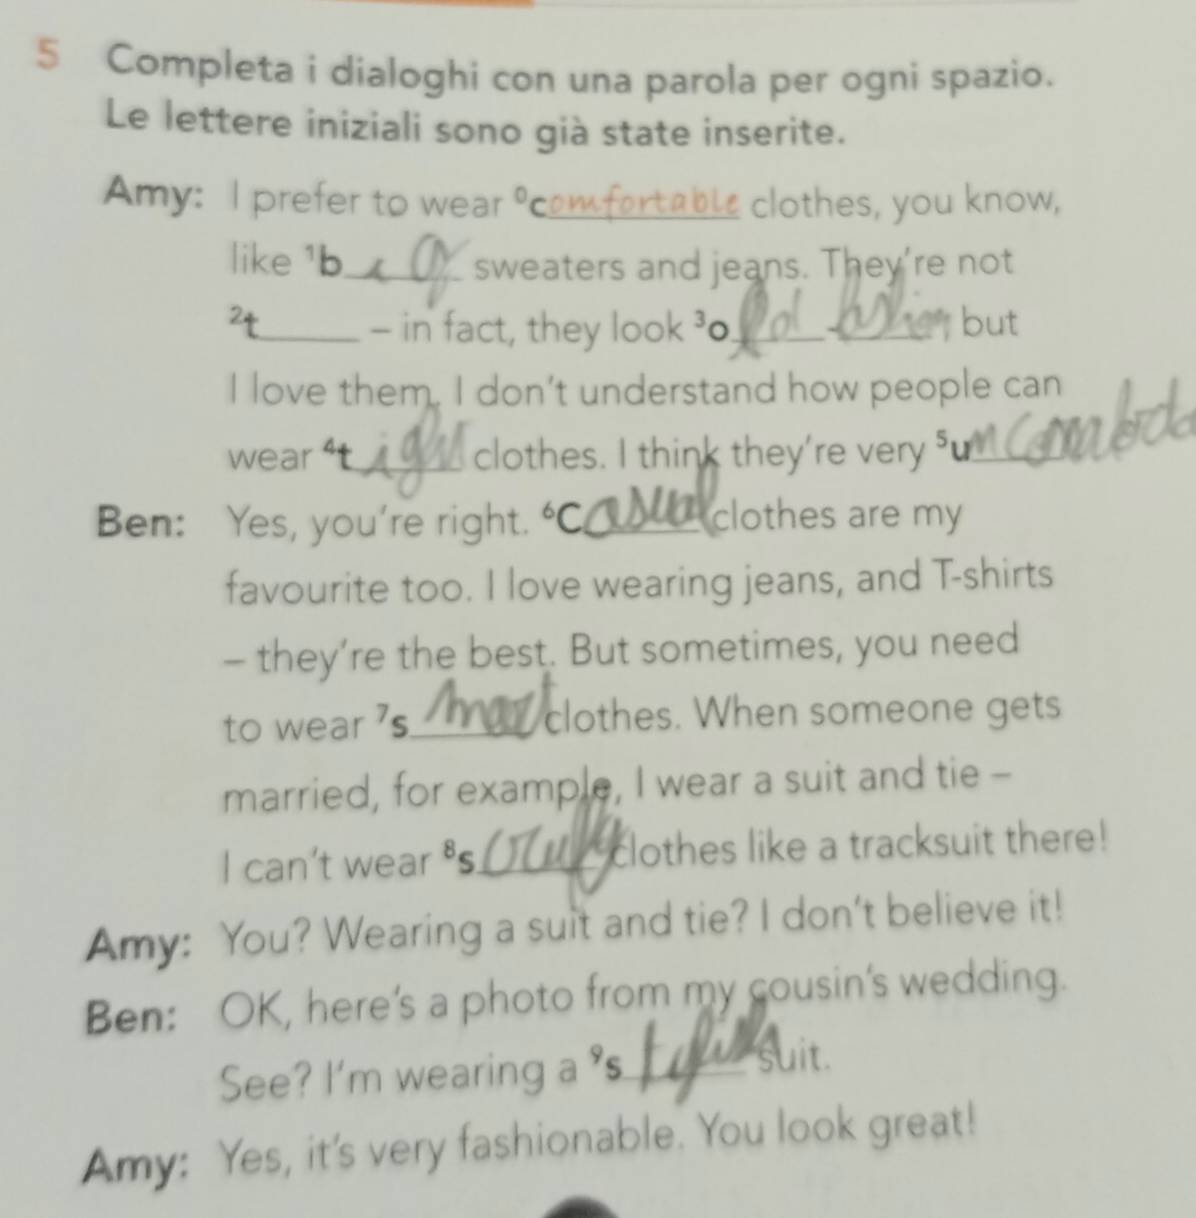 5 Completa i dialoghi con una parola per ogni spazio.
Le lettere iniziali sono già state inserite.
Amy: I prefer to wear ⁰comfortable clothes, you know,
like ¹b______ sweaters and jeans. They're not
²t______ – in fact, they look ³o______-______, but
I love them. I don't understand how people can
wear ⁴tight clothes. I think they're very ⁵u______
Ben: Yes, you're right. ⁶Casual clothes are my
favourite too. I love wearing jeans, and T-shirts
– they're the best. But sometimes, you need
to wear ⁷smart clothes. When someone gets
married, for example, I wear a suit and tie –
I can't wear ⁸s______ clothes like a tracksuit there!
Amy: You? Wearing a suit and tie? I don't believe it!
Ben: OK, here's a photo from my cousin's wedding.
See? I'm wearing a ⁹s______ suit.
Amy: Yes, it's very fashionable. You look great!